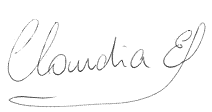 Claudia El